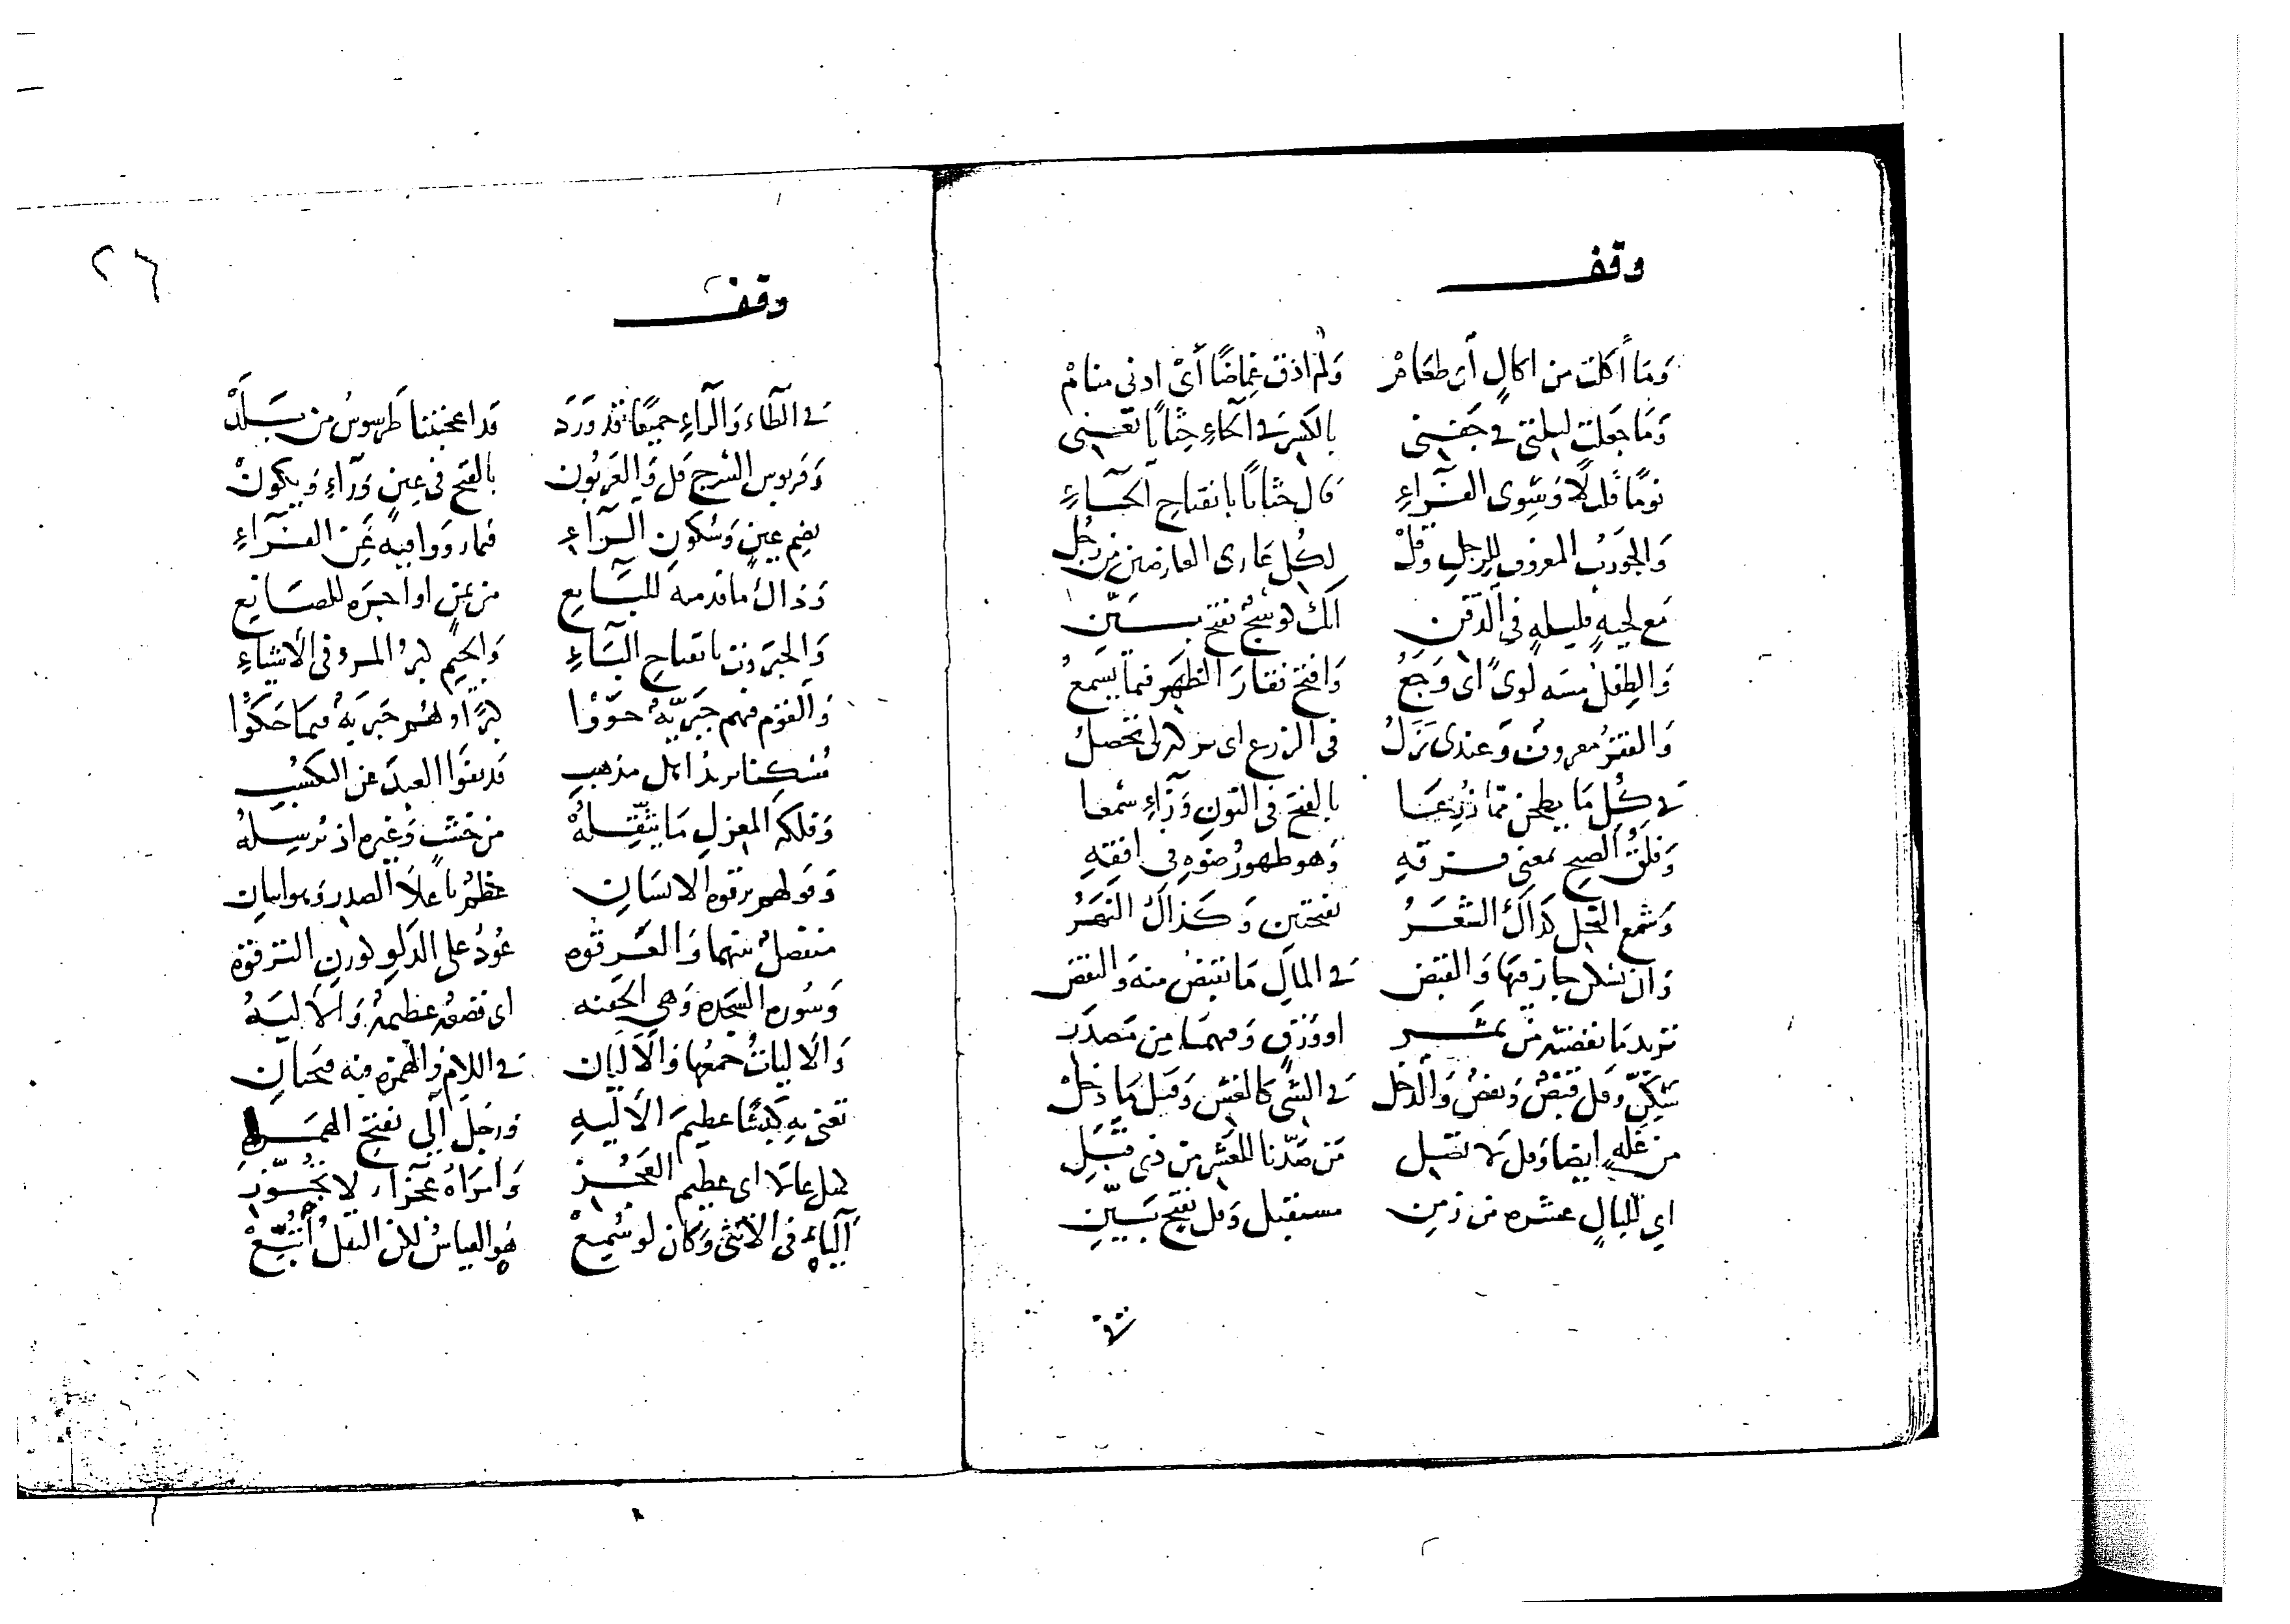 وقف
وَمَا أَكَلت من اكالٍ أى طعَامْ وَلم اذق غِمَاضًا أىْ ادنى منامْ
وَمَا جَعلت ليلتى في جَفنى بالكسر في الحاءِ حِثاثًا تعنى
نومًا قليلًا وَسِوى الفرَّاءِ قال حَثاثًا بانفتاح الحاءِ
وَالجَوربُ المعروف للرجلِ وَقلْ لِكل عَارى العارضين من رَجُل
مَع لحيهٍ قليلهٍ في الذقن الك لوسج بفتح بيّن
وَالطِفلُ مسه لَوىً اى وَجَعُ وَافتح فقارَ الظهر فيما يسمعُ
وَالفقرُ معروف وَعندى نَزَلُ في الزرع اى بركه تحصلُ
في كل مَا يطحن ممّا زُرِعَا بالفتح في النونِ وَزاءٍ سُمعا
وَفلق الصبح بمعنى فرقهِ وَهو ظهورُ ضوءِه في افقهِ
وَشمع النحل كذاكَ الشعَرُ بفتحتين وَكذاكَ النهَرُ
وَان تسكن جاز فيهَا وَالقبض في المالِ مَا تقبضُ منه وَالنفض
تريد مَا نفضته من ثمر او وَرَقٍ وَفيهمَا من مَصدَر
سَكِّن وَقل قبضٌ وَنفضٌ وَالدخل في الشى كالغش وَقيل مَا دخلْ
من غلهٍ ايضا وَقل لا تقبل مَن صَدّنا للغش من ذى قبَلِ
اي لليالٍ عشره من زمن مستقبل وَقل بفتح بيّنِ
٢٦
وقف
في الطاء وَالراءِ جميعًا قد وَرَدَ قد اعجبتنا طرسوسُ من بَلَدْ
وَقربوس السرج قل وَالعَربُون بالفتح في عينٍ وَرآءٍ وَيكونْ
بضم عينٍ وَسُكونِ الراءِ فيما رووا فيه عَنِ الفرَّاءِ
وَذاكَ ما قدمه للبايع من ثمن او اجرَه للصانع
وَالجبَروت بانفتاح الباءِ وَالجيم كبرُ المرءِ في الاشياءِ
وَالقوم فيهم جَبَريّهٌ حوَوا كبرًا وهم جَبريهٌ فيمَا حَكَوْا
مُسَكِنا يريد اهل مذهب قد نفَوا العبدَ عن التكسُب
وَفلكه المغزل مَا يثقّلهْ من خشب وَغيره اذ تُرسِلُهْ
وَقولهم ترقوه الانسَانِ عظمٌ باعلَا الصدر وَهو ابيان
منفصلٌ بينهما وَالعَرقوه عُودٌ على الدَلوِ لوزنِ الترقوَه
وَسُوره السَجده وَهى الجَفنه اى قصعهٌ عظيمهٌ وَالاليَهُ
وَالَاليات جمعُها وَالَاليَان في اللامِ وَالهمزه منه فتحانِ
تعنى به كبشًا عظيمَ الاليهِ وَرَجُلٌ آلي بفتح الهمزه
اى عظيم العَجُز وَامرَاهٌ عجزاء لا تجوّز
الياءُ في الانثى وَكان لو سُمِعْ هو القياسُ لكن النقلُ اتّبعْ